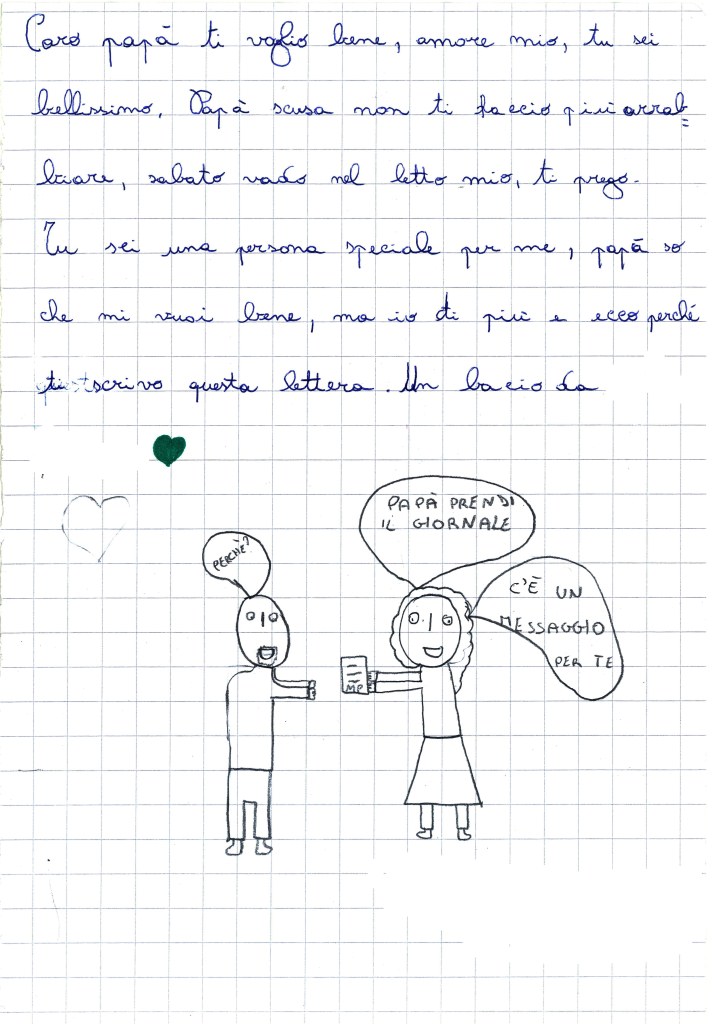 Caro papà ti voglio bene, amore mio, tu sei
bellissimo. Papà scusa non ti faccio più arrab=
biare, sabato vado nel letto mio, ti prego.
Tu sei una persona speciale per me, papà so
che mi vuoi bene, ma io di più e ecco perché
ti scrivo questa lettera. Un bacio da
PAPÀ PRENDI
IL GIORNALE
PERCHÈ?
C'È UN
MESSAGGIO
PER TE
MP